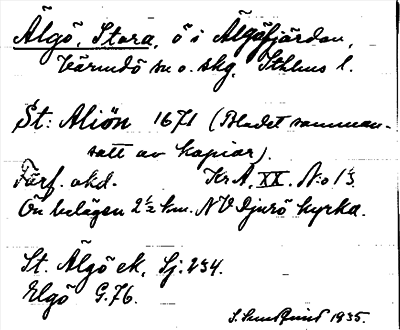 Älgö, Stora, ö i Älgöfjärden,
Värmdö sn o. skg, Sthlms l.
St: Aliön 1671 (Bladet samman-
satt av kopior).
Förf. okd. KrA, XX. N:o 13.
Ön belägen 2½ km. NV Djurö kyrka.
St. Älgö ek, Sj. 234.
Elgö G.76.
1935.